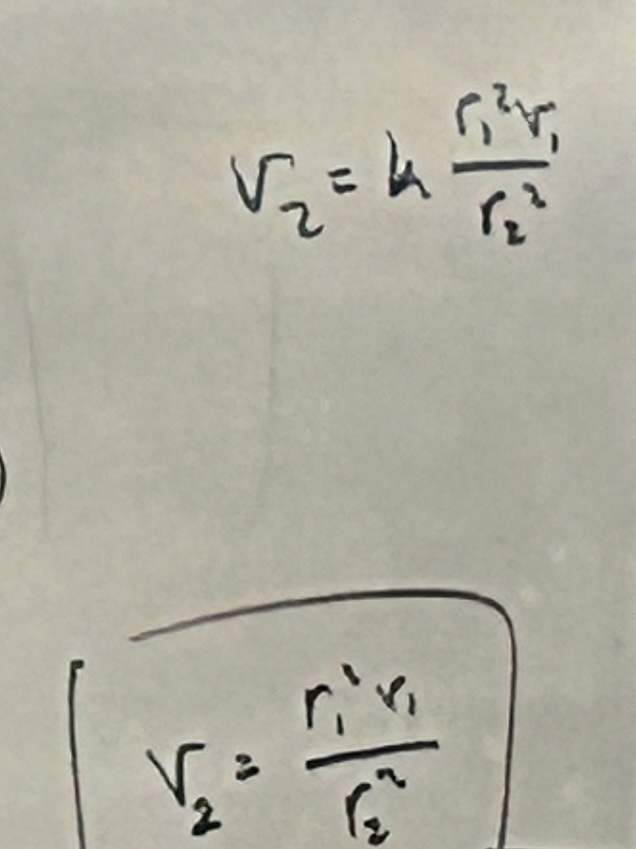 V₂ = k r₁²v₁ / r₂²
V₂ = r₁²v₁ / r₂²